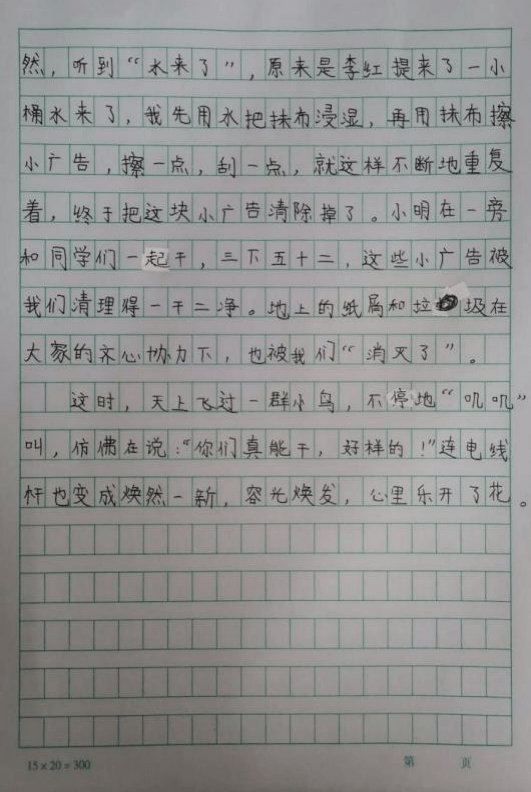 然，听到“水来了”，原来是李红提来了一小
桶水来了，我先用水把抹布浸湿，再用抹布擦
小广告，擦一点，刮一点，就这样不断地重复
着，终于把这块小广告清除掉了。小明在一旁
和同学们一起干，三下五十二，这些小广告被
我们清理得一干二净。地上的纸屑和垃圾在
大家的齐心协力下，也被我们“消灭了”。
这时，天上飞过一群小鸟，不停地“叽叽”
叫，仿佛在说：“你们真能干，好样的！”连电线
杆也变成焕然一新，容光焕发，心里乐开了花。
15×20=300 第 页